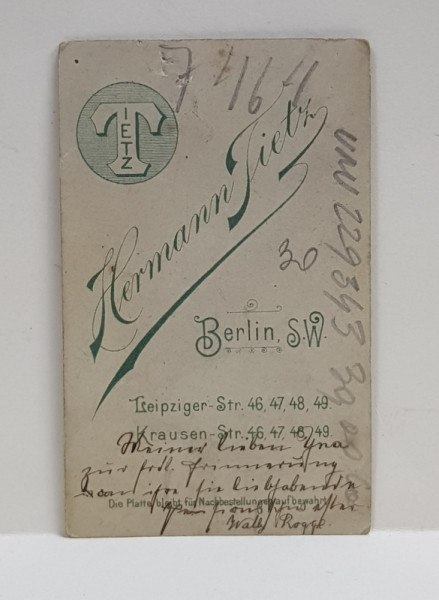 7464
TIETZ
Hermann Tietz
30
Berlin, S.W.
Leipziger-Str. 46, 47, 48, 49.
Krausen-Str. 46, 47, 48, 49.
Meiner lieben
zur frdl. Erinnerung
an ihre sie liebhabende
Die Platte bleibt für Nachbestellungen aufbewahrt.
Wally Rogge.
229343